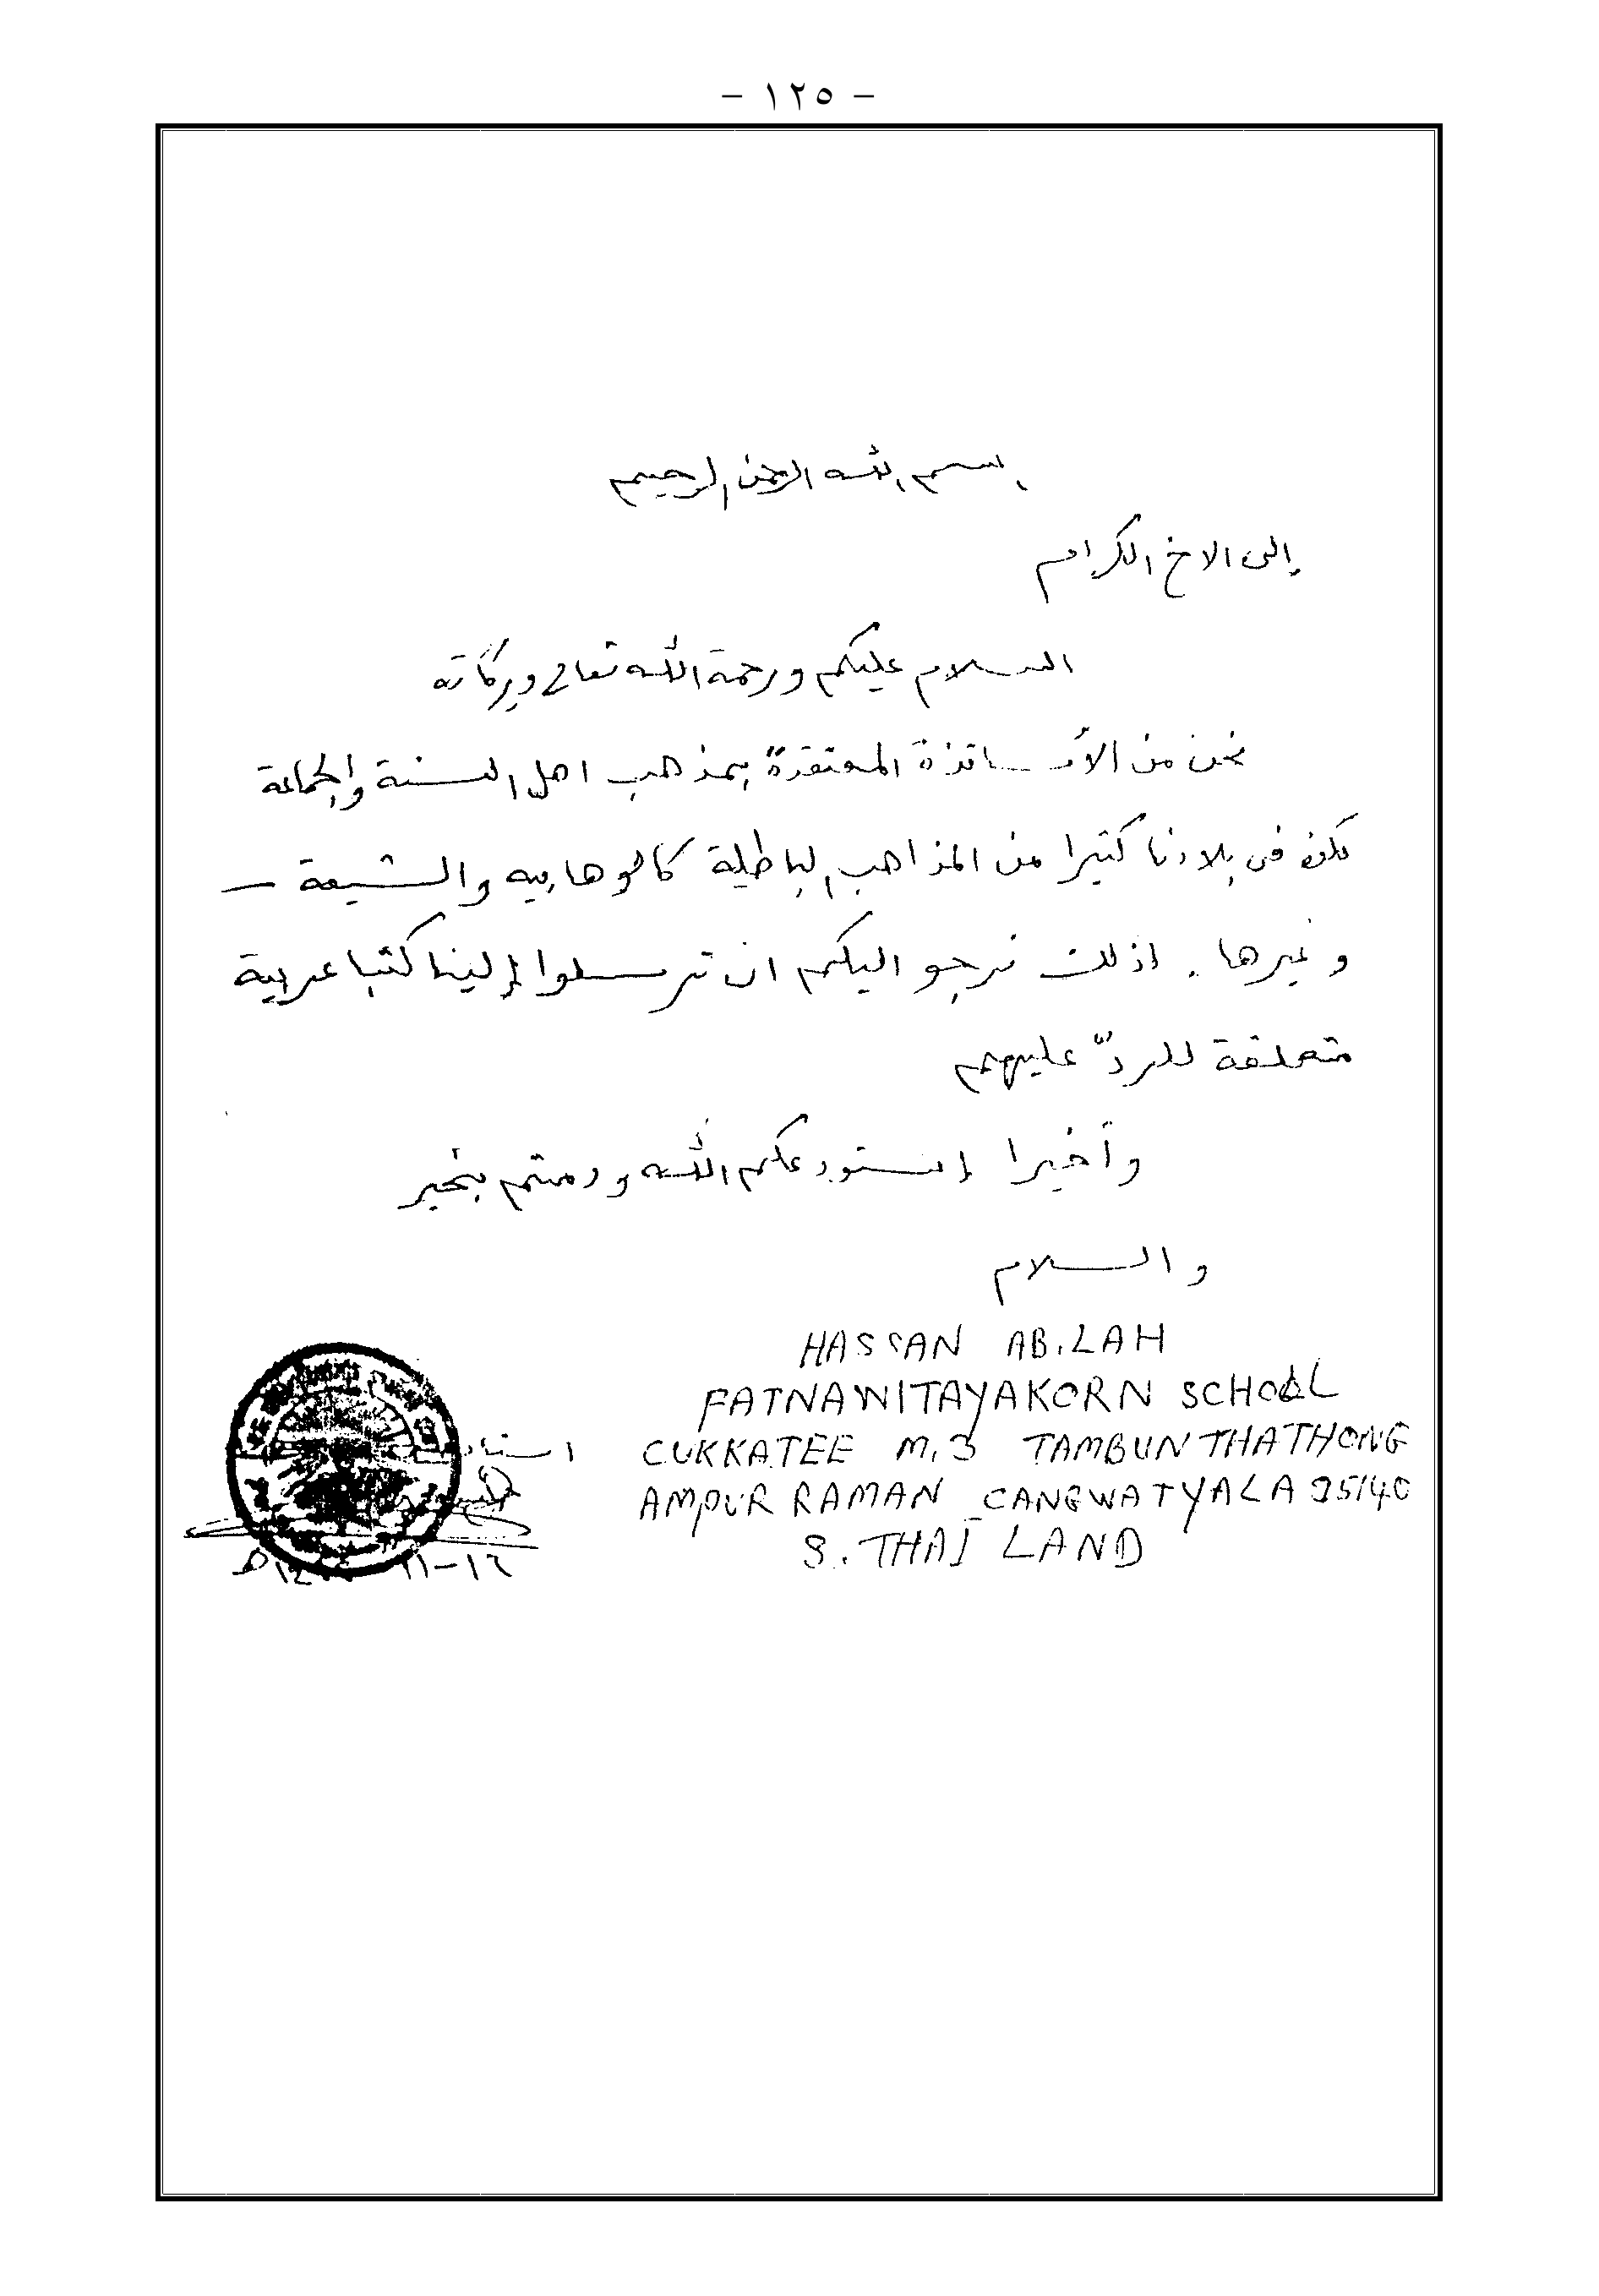 - ١٢٥ -
بسم الله الرحمن الرحيم
إلى الاخ الكرام
السلام عليكم ورحمة الله تعالى وبركاته
نحن من الأساتذة المعتقدة بمذهب اهل السنة والجماعة
لكن فى بلادنا كثيرا من المذاهب الباطلة كالوهابيه والشيعة –
وغيرها . لذلك نرجو اليكم ان ترسلوا إلينا كتبا عربية
متعلقة للردّ عليهم
وأخيرا إستودعكم الله ودمتم بخير
والسلام
HASSAN AB.LAH
FATNAWITAYAKORN SCHOOL
CUKKATEE M.3 TAMBUN THATHONG
استاذ
AMPUR RAMAN CANGWAT YALA 95140
S. THAILAND